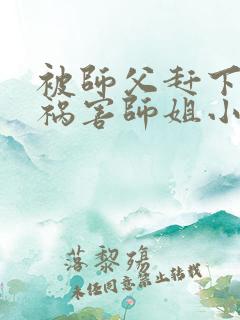 被師父赶下
祸害師姐小
落黎殤
未经同意禁止转载